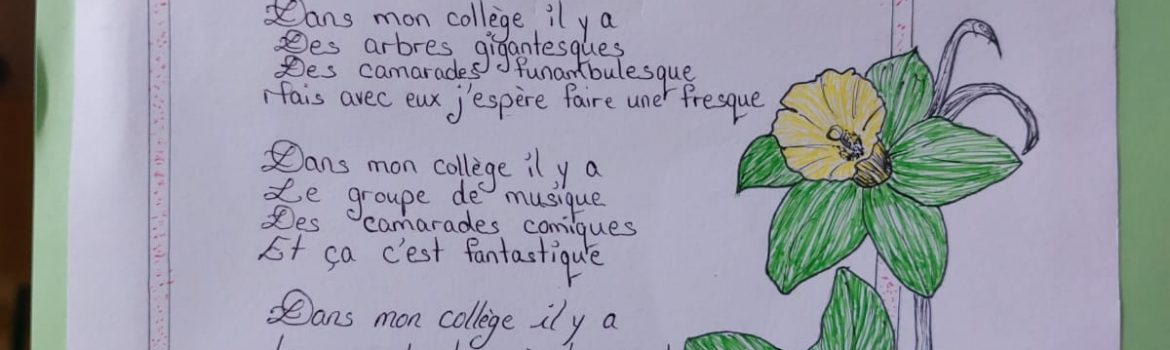 Dans mon collège il y a
Des arbres gigantesques
Des camarades funambulesque
Mais avec eux j'espère faire une fresque
Dans mon collège il y a
Le groupe de musique
Des camarades comiques
Et ça c'est fantastique
Dans mon collège il y a